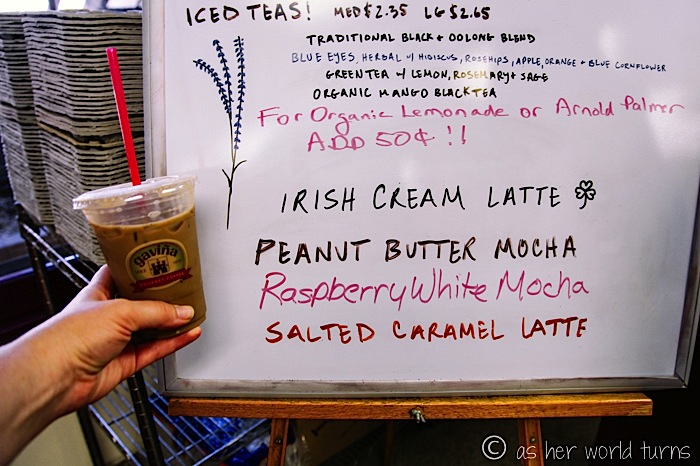 ICED TEAS! MED $2.35 LG $2.65
TRADITIONAL BLACK + OOLONG BLEND
BLUE EYES, HERBAL w/ HIBISCUS, ROSEHIPS, APPLE, ORANGE + BLUE CORNFLOWER
GREEN TEA w/ LEMON, ROSEMARY + SAGE
ORGANIC MANGO BLACK TEA
For Organic Lemonade or Arnold Palmer
ADD 50¢!!
IRISH CREAM LATTE
PEANUT BUTTER MOCHA
Raspberry White Mocha
SALTED CARAMEL LATTE
gaviña
© as her world turns